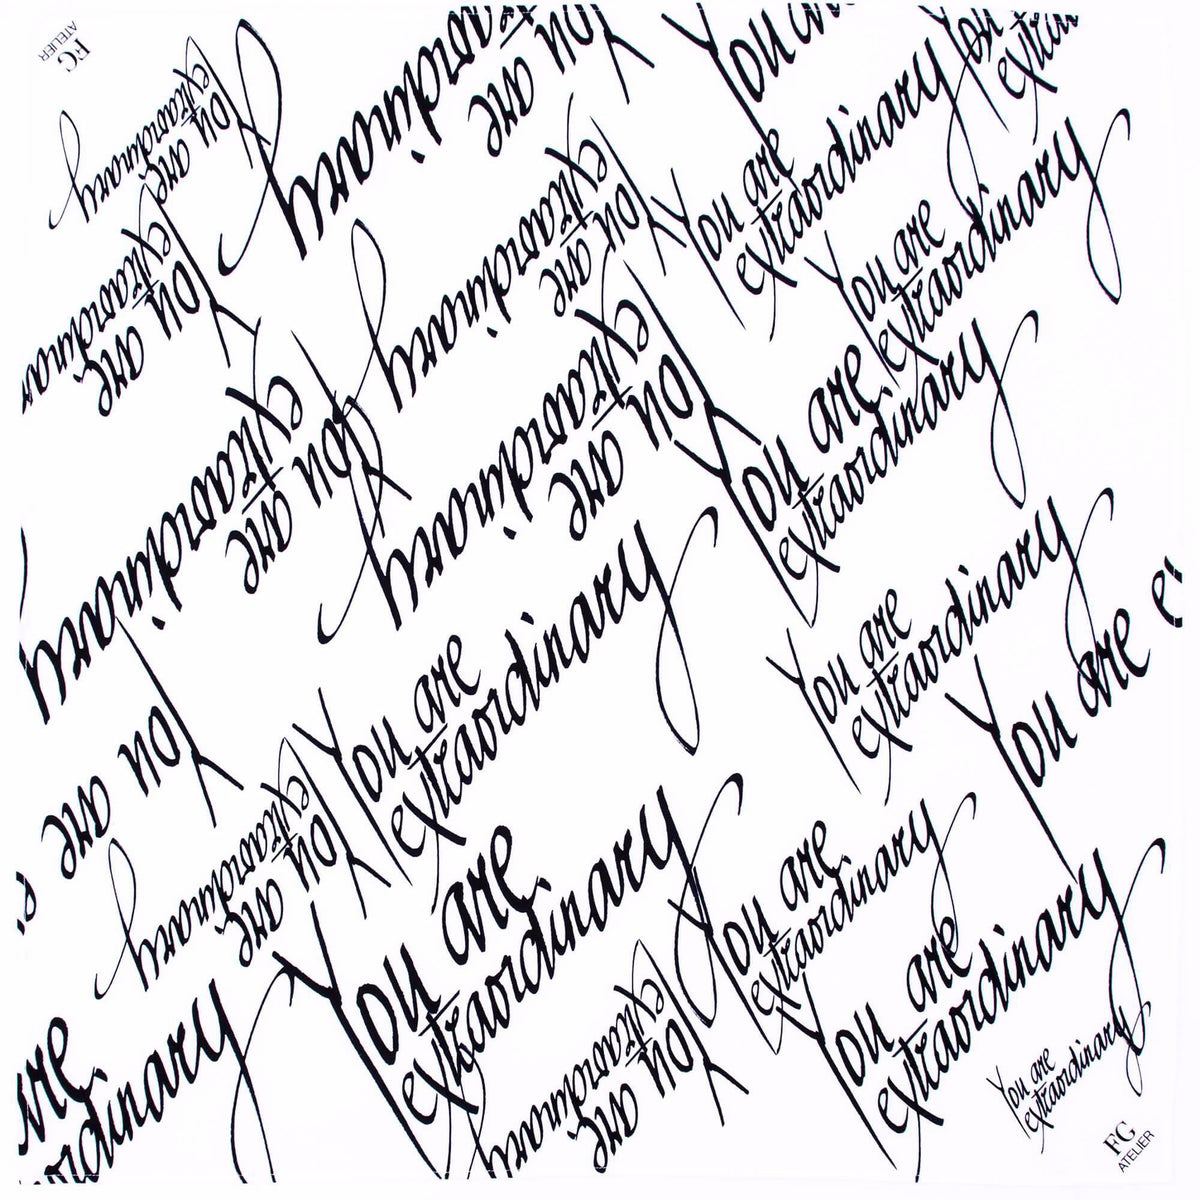 FG
ATELIER
You are
extraordinary
You are
extraordinary
You are
extraordinary
You are
extraordinary
You are
extraordinary
You are
extraordinary
You are
extraordinary
You are
extraordinary
You are
extraordinary
You are
extraordinary
You are
extraordinary
You are
You are
You are
extraordinary
You are
extraordinary
You are
extraordinary
You are
extraordinary
You are
extraordinary
You are
extraordinary
You are
extraordinary
FG
ATELIER